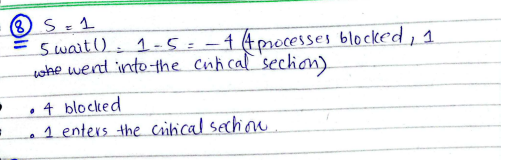 ⑧ S = 1
5 wait() = 1-5 = -4 (4 processes blocked, 1
who went into the critical section)
• 4 blocked
• 1 enters the critical section.